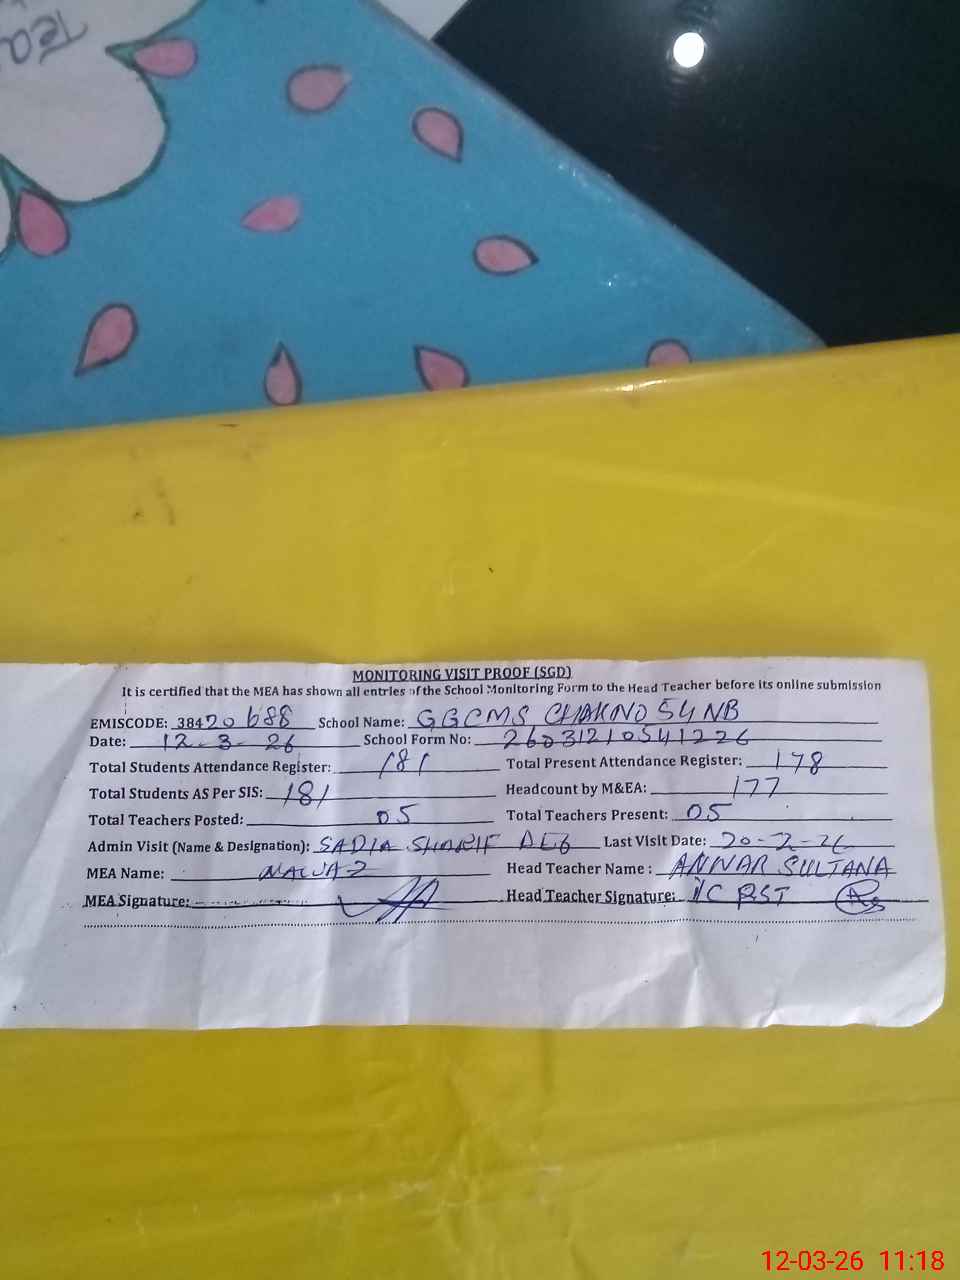 Tea
MONITORING VISIT PROOF (SGD)
It is certified that the MEA has shown all entries of the School Monitoring Form to the Head Teacher before its online submission
EMISCODE: 38420688 School Name: GGCMS CHAKNO 54 NB
Date: 12-3-26 School Form No: 26031210541226
Total Students Attendance Register: 181 Total Present Attendance Register: 178
Total Students AS Per SIS: 181 Headcount by M&EA: 177
Total Teachers Posted: 05 Total Teachers Present: 05
Admin Visit (Name & Designation): SADIA SHARIF Last Visit Date: 20-2-26
MEA Name: NAWAZ Head Teacher Name : ANWAR SULTANA
MEA Signature: Head Teacher Signature:
12-03-26 11:18